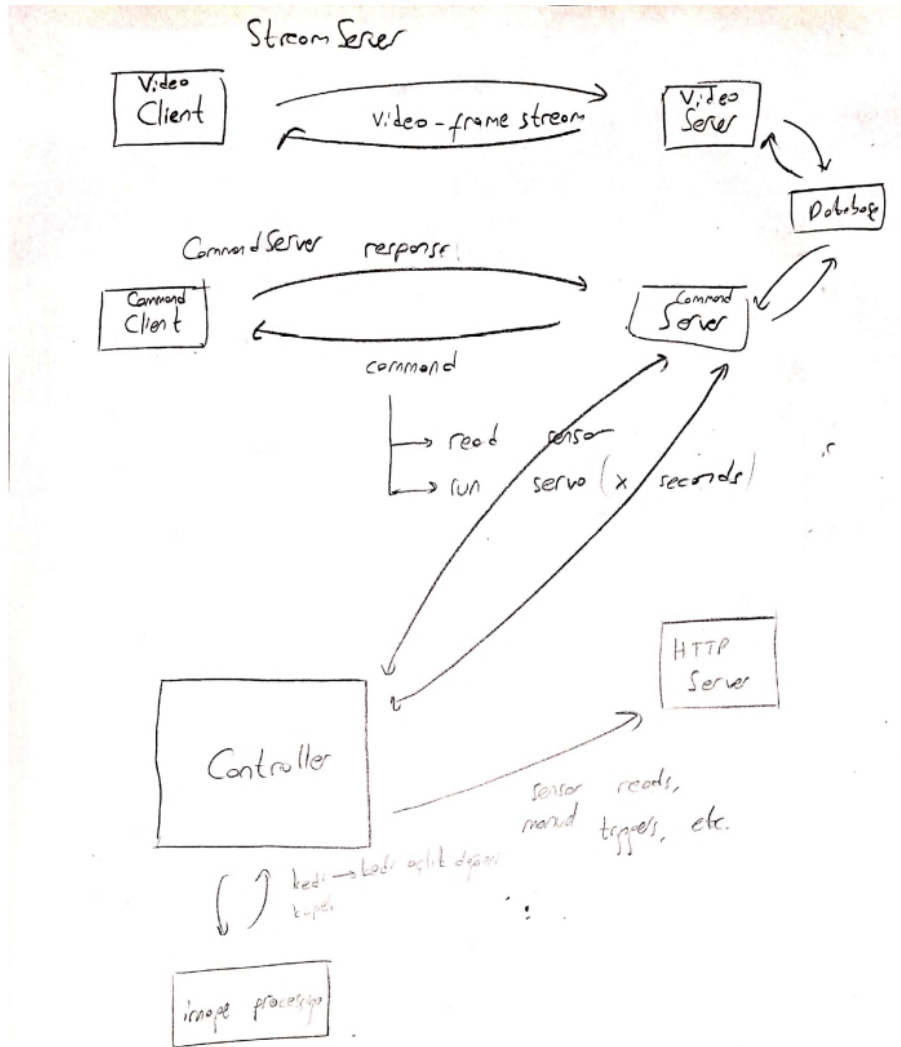 Stream Server
Video
Client
Video
Server
Video-frame stream
Database
Command Server
response
Command
Client
Command
Server
command
read sensor
run servo (x seconds)
HTTP
Server
Controller
sensor reads,
manuel triggers, etc.
kedi → kedi açlık
image processing